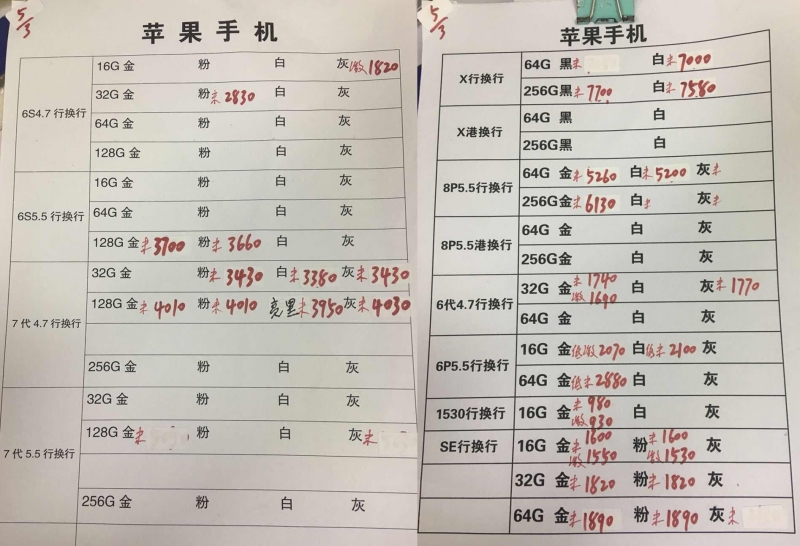 5/3
苹果手机
6S4.7行换行
16G 金 粉 白 灰激1820
32G 金 粉未2830 白 灰
64G 金 粉 白 灰
128G 金 粉 白 灰
6S5.5行换行
16G 金 粉 白 灰
64G 金 粉 白 灰
128G 金未3700 粉未3660 白 灰
7代4.7行换行
32G 金 粉未3430 白未3380 灰未3430
128G 金未4010 粉未4010 亮黑未3950 灰未4030
256G 金 粉 白 灰
7代5.5行换行
32G 金 粉 白 灰
128G 金未 粉 白 灰未
256G 金 粉 白 灰
5/3
苹果手机
X行换行
64G 黑未 白未7000
256G黑未7700 白未7580
X港换行
64G 黑 白
256G黑 白
8P5.5行换行
64G 金未5260 白未5200 灰未
256G金未6130 白未 灰未
8P5.5港换行
64G 金 白 灰
256G金 白 灰
6代4.7行换行
32G 金未1740 激1690 白 灰未1770
64G 金 白 灰
6P5.5行换行
16G 金低激2070 白低未2100 灰
64G 金低未2880 白 灰
1530行换行 16G 金未980 激930 白 灰
SE行换行 16G 金未1600 激1550 粉未1600 激1530 灰
32G 金未1820 粉未1820 灰
64G 金未1890 粉未1890 灰未